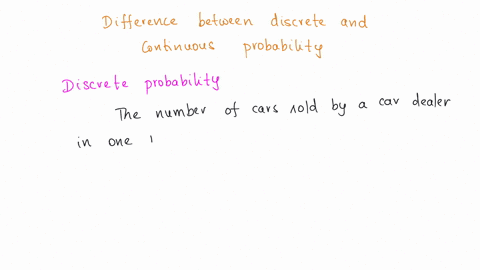 Difference between discrete and
Continuous probability
Discrete probability
The number of cars sold by a car dealer
in one